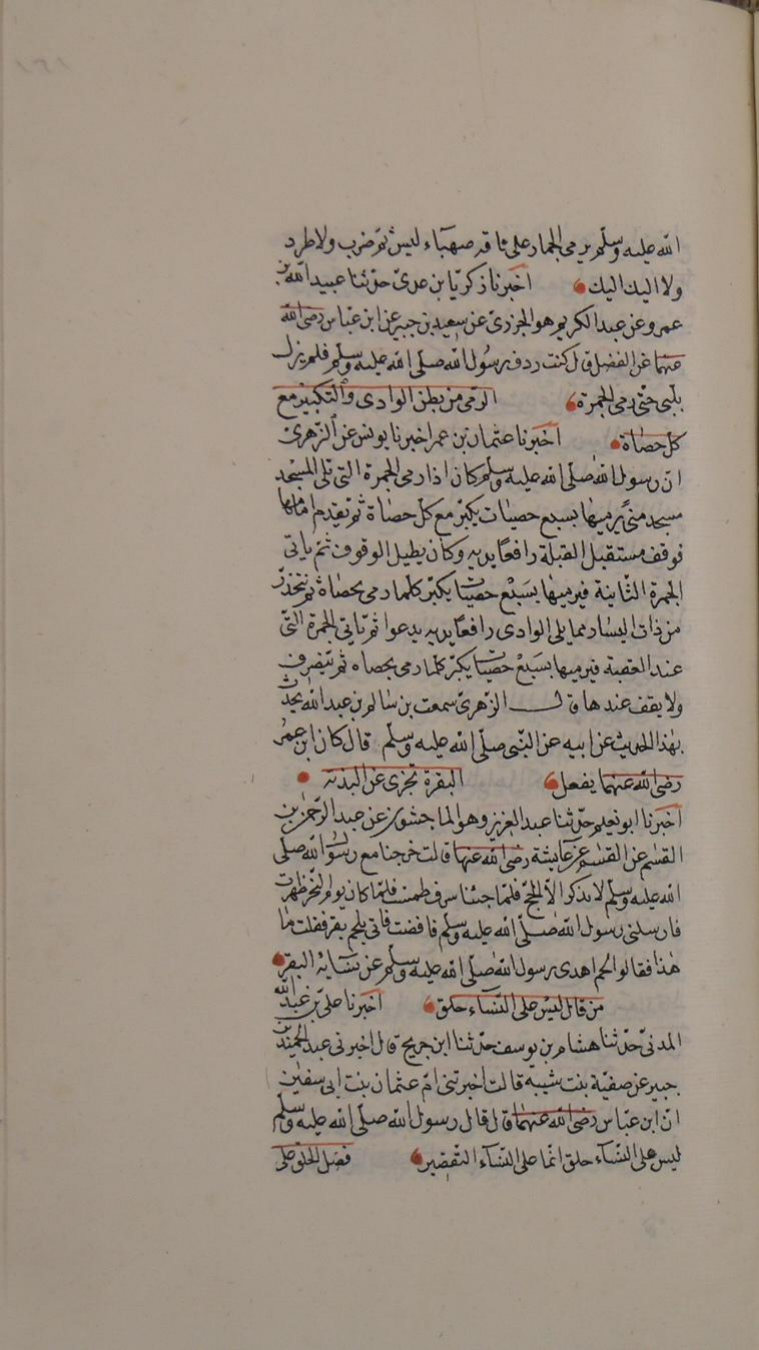 الله عليه وسلم يرمى الجمار على ناقة صهباء ليس ثم ضرب ولا طرد
ولا اليك اليك اخبرنا زكريا بن عدى حدثنا عبيد الله بن
عمرو عن عبد الكريم هو الجزرى عن سعيد بن جبير عن ابن عباس رضى الله
عنهما عن الفضل قال كنت ردف رسول الله صلى الله عليه وسلم فلم يزل
يلبى حتى رمى الجمرة الرمى من بطن الوادى والتكبير مع
كل حصاة اخبرنا عثمان بن عمر اخبرنا يونس عن الزهرى
ان رسول الله صلى الله عليه وسلم كان اذا رمى الجمرة التى تلى المسجد
مسجد منى يرميها بسبع حصيات يكبر مع كل حصاة ثم تقدم امامها
فوقف مستقبل القبلة رافعا يديه وكان يطيل الوقوف ثم ياتى
الجمرة الثانية فيرميها بسبع حصيات يكبر كلما رمى بحصاة ثم ينحدر
من ذات اليسار مما يلى الوادى رافعا يديه يدعوا ثم ياتى الجمرة التى
عند العقبة فيرميها بسبع حصيات يكبر كلما رمى بحصاه ثم ينصرف
ولا يقف عندها قال الزهرى سمعت بن سالم بن عبد الله يحدث
بهذا الحديث عن ابيه عن النبى صلى الله عليه وسلم قال كان ابن عمر
رضى الله عنهما يفعل البقرة تجزى عن البدنة
اخبرنا ابو نعيم حدثنا عبد العزيز وهو الماجشون عن عبد الرحمن بن
القسم عن القسم عن عايشة رضى الله عنها قالت خرجنا مع رسول الله صلى
الله عليه وسلم لا نذكر الا الحج فلما جئنا سرف طمثت فلما كان يوم النحر طهرت
فارسلنى رسول الله صلى الله عليه وسلم فافضت فاتى بلحم بقر فقلت ما
هذا فقالوا لحم اهدى رسول الله صلى الله عليه وسلم عن نسايه البقر
من قال ليس على النساء حلق اخبرنا على بن عبد الله
المدنى حدثنا هشام بن يوسف حدثنا ابن جريج قال اخبرنى عبد الحميد بن
جبير عن صفية بنت شيبه قالت اخبرتنى ام عثمان بنت ابى سفين
ان ابن عباس رضى الله عنهما قال قال رسول الله صلى الله عليه وسلم
ليس على النساء حلق انما على النساء التقصير فضل الحلق على